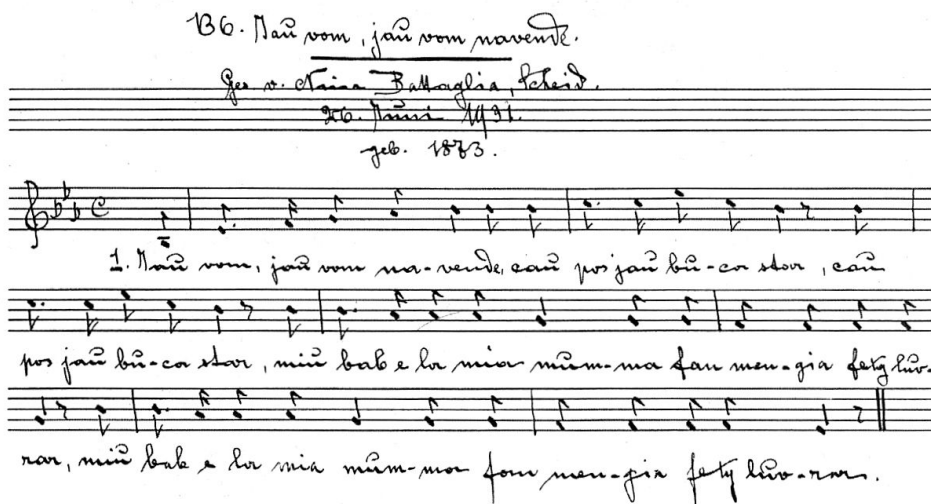 136. Jau vom, jau vom navende.
Ges. v. Nina Battaglia, Scheid.
26. Juni 1931.
geb. 1873.
1. Jau vom, jau vom na-vende, cau pos jau bu-ca star, cau
pos jau bu-ca star, miu bab e la mia mum-ma fan men-gia fetg luv-
rar, miu bab e la mia mum-ma fan men-gia fetg luv-rar.